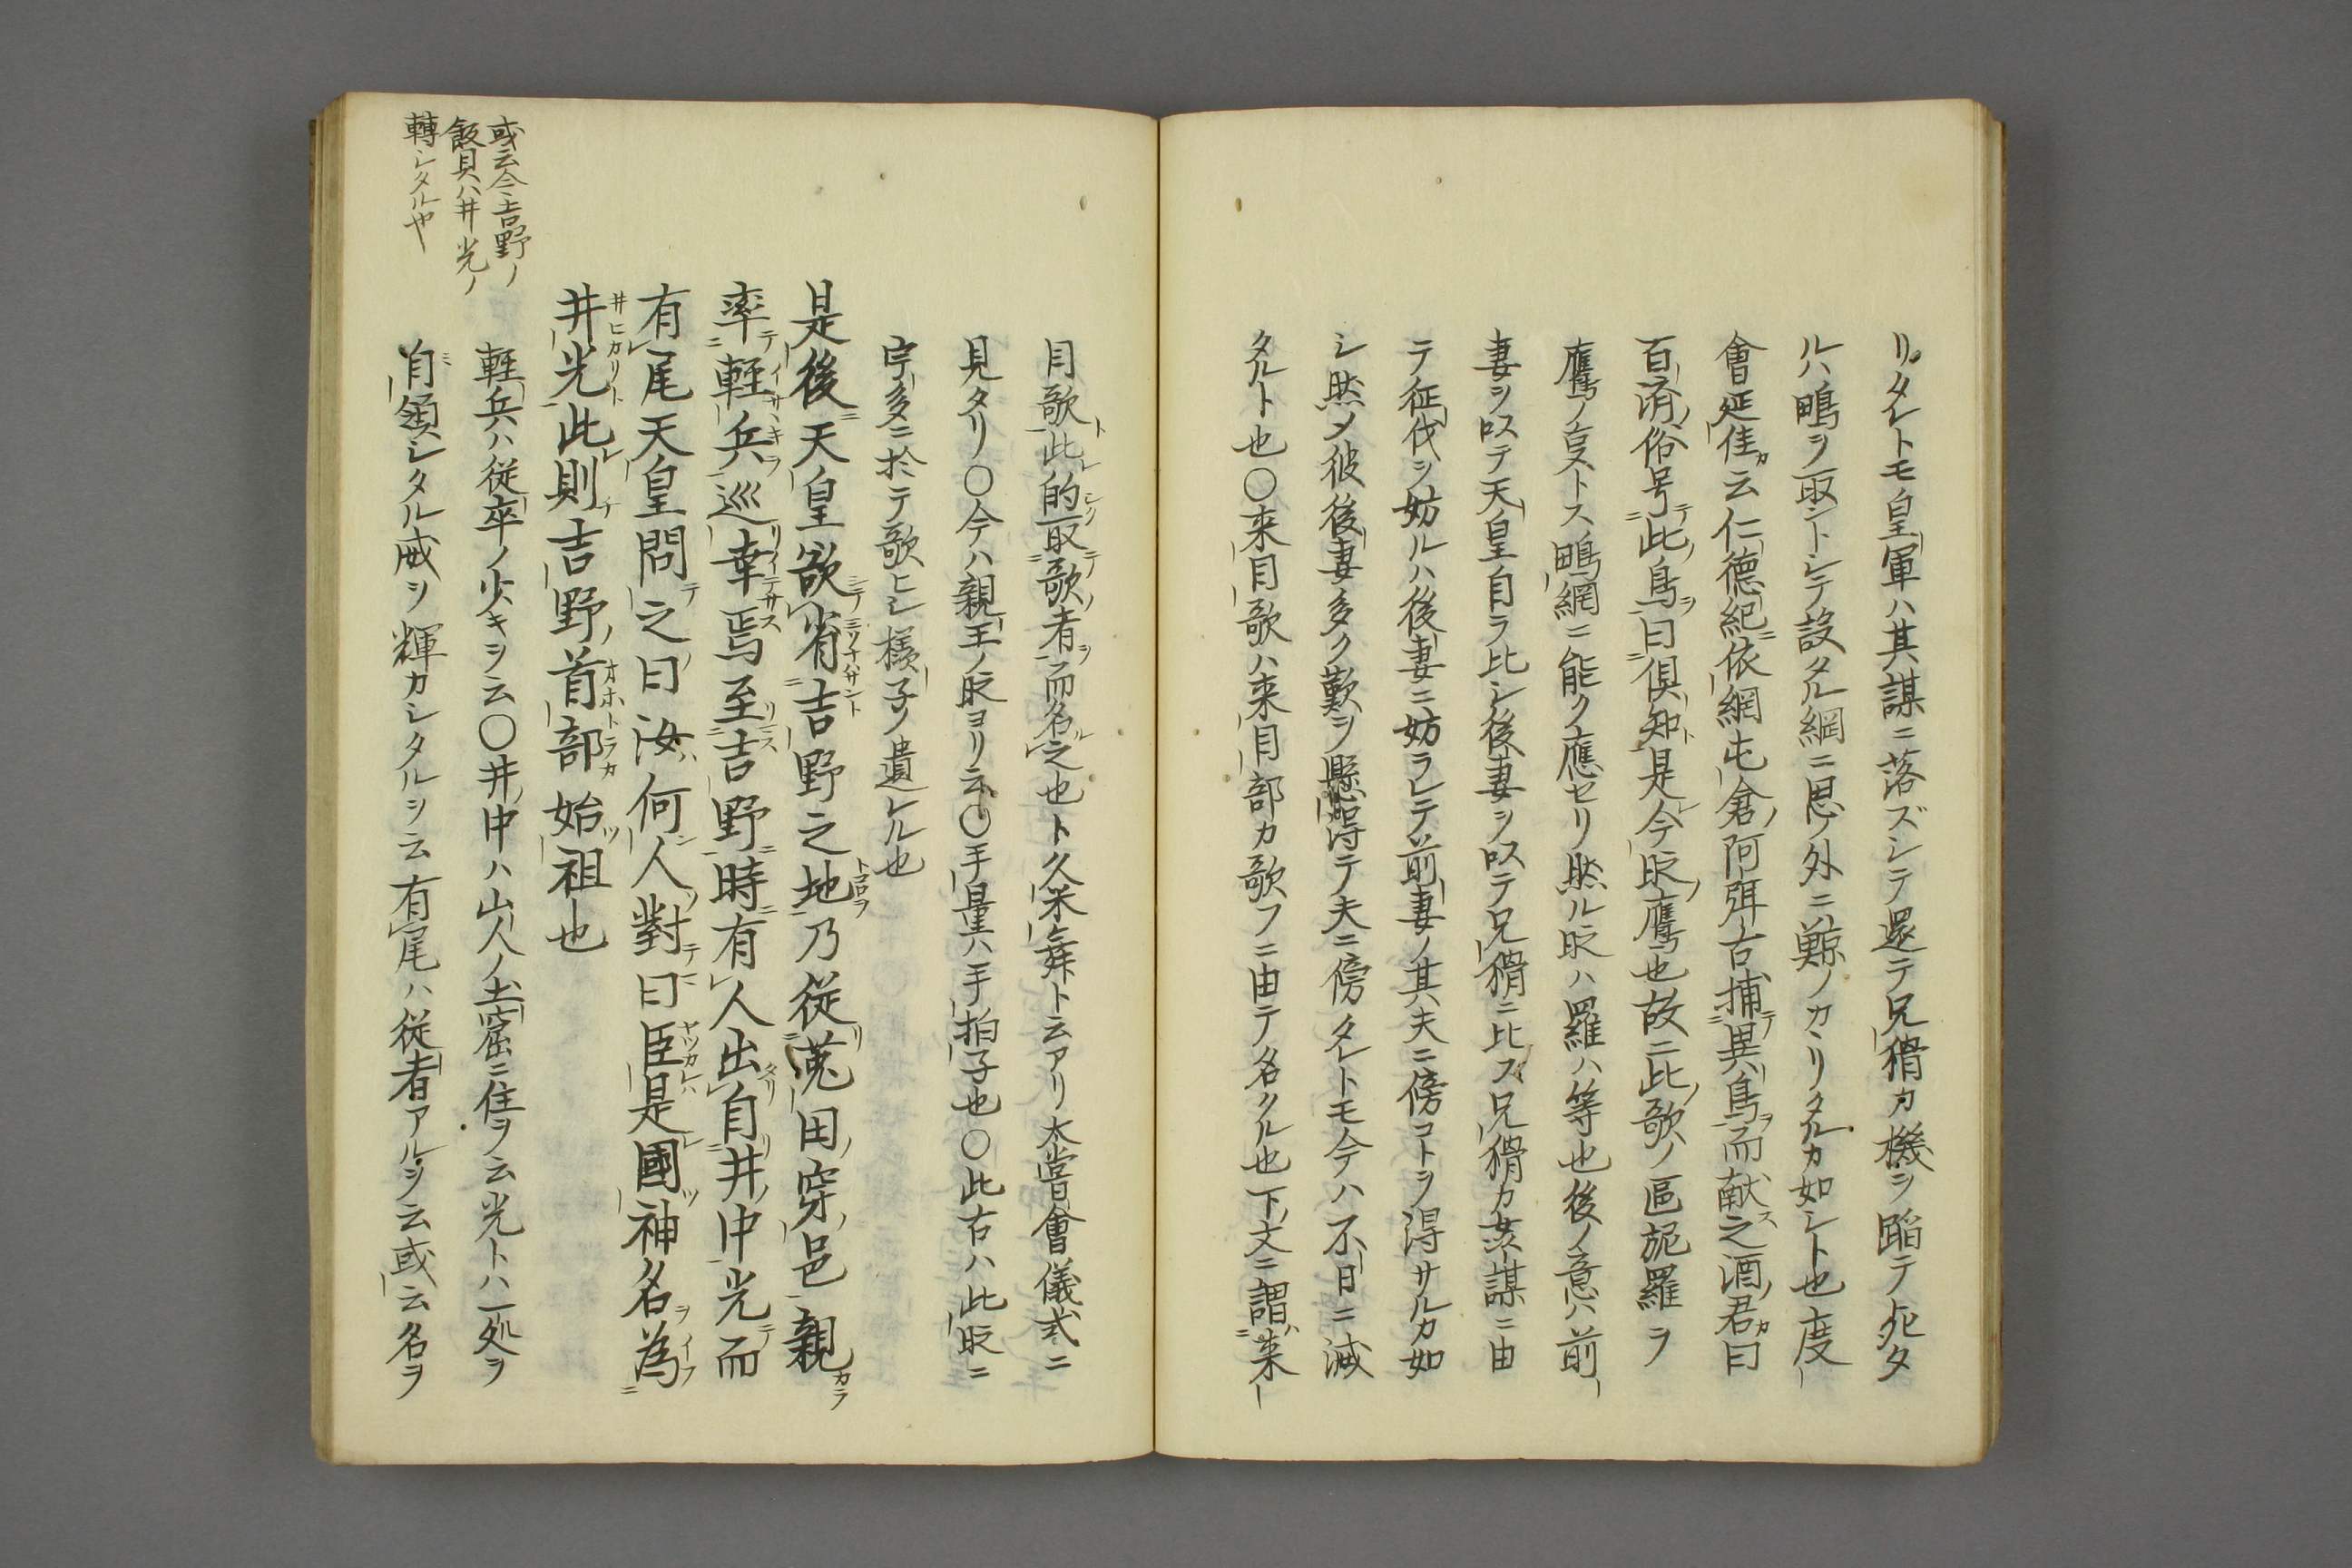 リタレトモ皇軍ハ其謀ニ落ズシテ還テ兄猾カ機ヲ蹈テ死タ
ルハ鴫ヲ取ントシテ設タル網ニ思ノ外ニ鯨ノカヽリタルカ如シト也度
會延佳云仁徳紀依網屯倉阿弭古捕異鳥而献之酒君曰
百済俗号此鳥曰倶知是今時鷹也故ニ此歌ノ區旎羅ヲ
鷹ノ亨トス鴫網ニ能ク應セリ然ル時ハ羅ハ等也後ノ意ハ前
妻ヲ以テ天皇自ラ比シ後妻ヲ以テ兄猾ニ比ス兄猾カ姦謀ニ由
テ征伐ヲ妨ルハ後妻ニ妨ラレテ前妻ノ其夫ニ傍コトヲ得サルカ如
シ然メ彼後妻多ク歎ヲ懸得テ夫ニ傍タレトモ今ハ不日ニ滅
タルト也〇来目歌ハ来目部カ歌フニ由テ名クル也下文ニ謂来
目歌此的取歌者而名之也ト久米舞ト云アリ太嘗會儀式ニ
見タリ〇今ハ親王ノ時ヨリ云〇手量ハ手拍子也〇此古ハ此時ニ
宇多ニ於テ歌ヒシ様子ノ遺レル也
是後天皇欲省吉野之地乃従菟田穿邑親
率軽兵巡幸焉至吉野時有人出自井中光而
有尾天皇問之曰汝何人對曰臣是國神名為
井光此則吉野首部始祖也
軽兵ハ従卒ノ少キヲ云〇井中ハ山人ノ土窟ニ住ヲ云光トハ一処ヲ
自領シタル威ヲ輝カシタルヲ云有尾ハ従者アルヲ云或云名ヲ
或云今吉野ノ
飯貝ハ井光ノ
轉シタルヤ